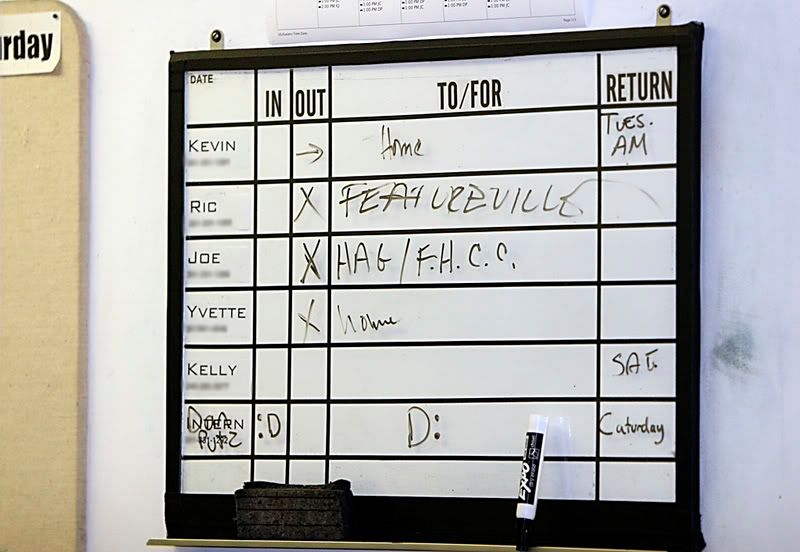 urday
DATE IN OUT TO/FOR RETURN
KEVIN → Home TUES. AM
RIC X FEATUREVILLE
JOE X HAG/F.H.C.C.
YVETTE X home
KELLY SAT.
INTERN :D D: Caturday
EXPO